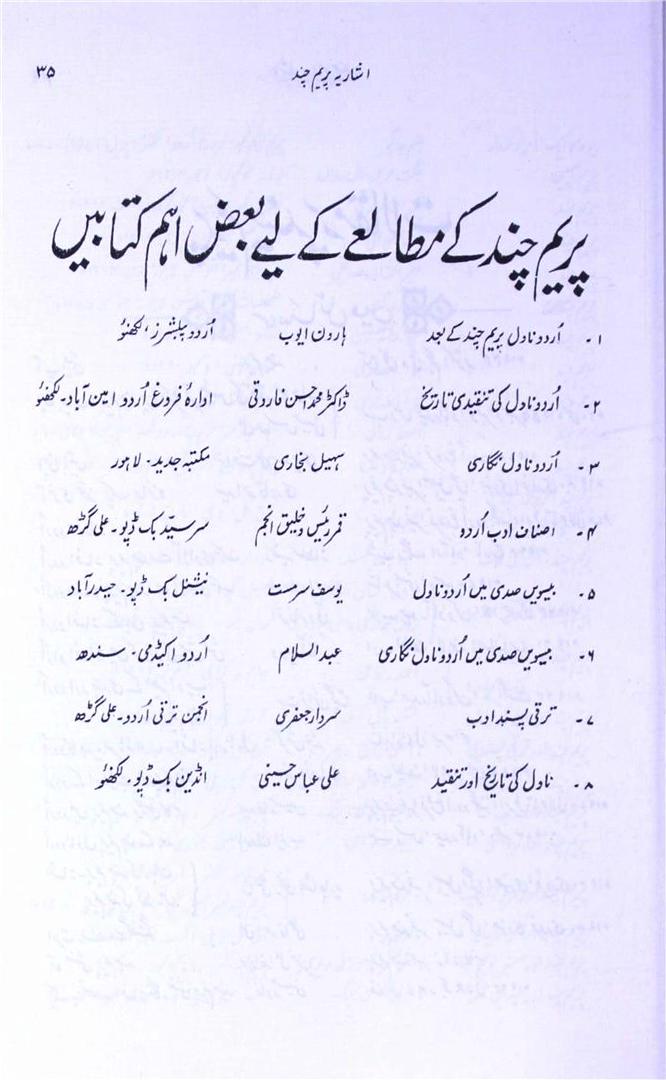 اشاریہ پریم چند ۳۵
پریم چند کے مطالعے کے لیے بعض اہم کتابیں
۱۔ اُردو ناول پریم چند کے بعد ہارون ایوب اُردو پبلشرز، لکھنؤ
۲۔ اُردو ناول کی تنقیدی تاریخ ڈاکٹر محمد احسن فاروقی ادارۂ فروغ اُردو امین آباد۔ لکھنؤ
۳۔ اُردو ناول نگاری سہیل بخاری مکتبہ جدید۔ لاہور
۴۔ اصناف ادب اُردو قمر رئیس و خلیق انجم سرسیّد بک ڈپو۔ علی گڑھ
۵۔ بیسویں صدی میں اُردو ناول یوسف سرمست نیشنل بک ڈپو۔ حیدرآباد
۶۔ بیسویں صدی میں اُردو ناول نگاری عبدالسلام اُردو اکیڈمی۔ سندھ
۷۔ ترقی پسند ادب سردار جعفری انجمن ترقی اُردو۔ علی گڑھ
۸۔ ناول کی تاریخ اور تنقید علی عباس حسینی انڈین بک ڈپو۔ لکھنؤ